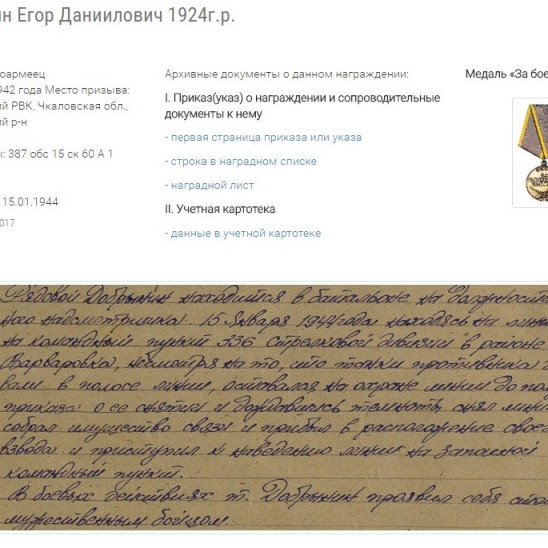 ин Егор Даниилович 1924г.р.
оармеец
942 года Место призыва:
ий РВК, Чкаловская обл.,
ий р-н
ы: 387 обс 15 ск 60 А 1
15.01.1944
2017
Архивные документы о данном награждении:
I. Приказ(указ) о награждении и сопроводительные
документы к нему
- первая страница приказа или указа
- строка в наградном списке
- наградной лист
II. Учетная картотека
- данные в учетной картотеке
Медаль «За бое
Рядовой Добрынин находится в батальоне на должности
ного надсмотрщика. 15 Января 1944 года находясь на линии
на командный пункт 336 стрелковой дивизии в районе
Варваровка, несмотря на то, что танки противника
вали в полосе линии, оставался на охране линии до по
приказа о ее снятии и дождавшись темноты, снял линию
собрал имущество связи и прибыл в расположение свое
взвода и приступил к наведению линии на запасной
командный пункт.
В боевых действиях т. Добрынин проявил себя
мужественным бойцом.